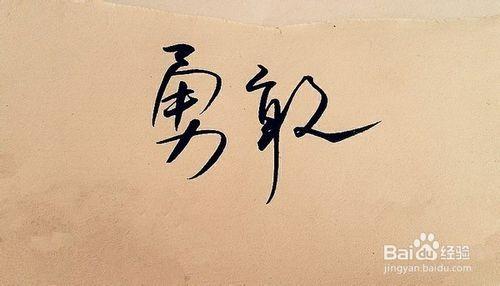 勇敢
Baidu经验
jingyan.baidu.com